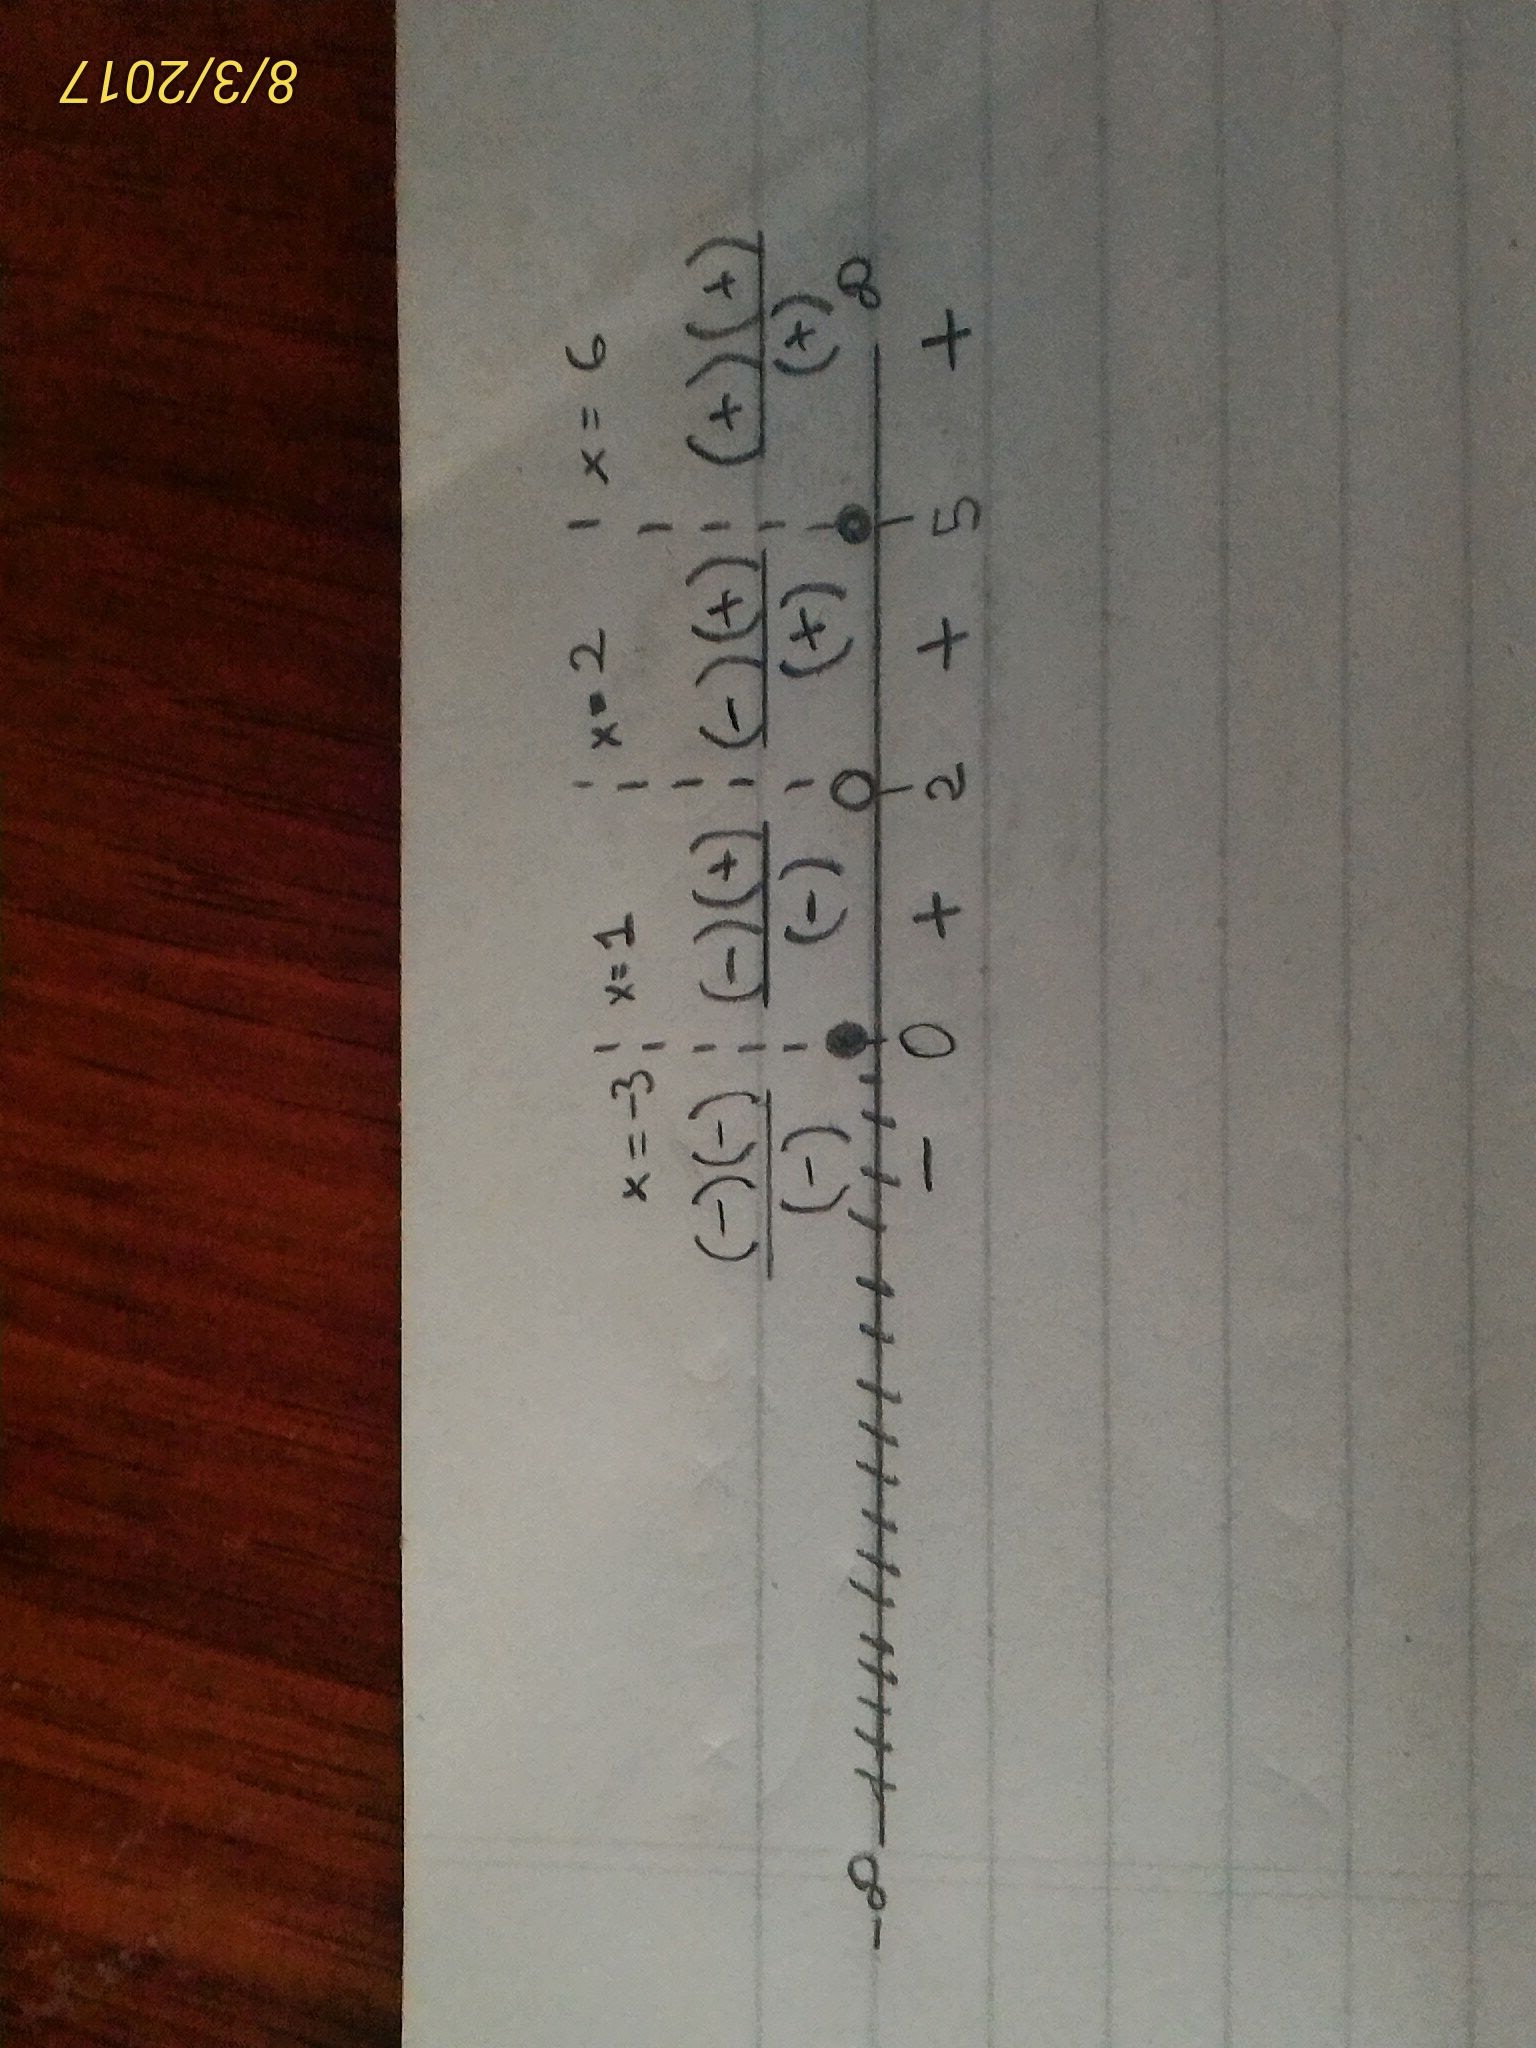 8/3/2017
x=-3 x=1 x=2 x=6
(-)(-) (-)(+) (-)(+) (+)(+)
(-) (-) (+) (+)
-∞ ∞
- 0 + 2 + 5 +